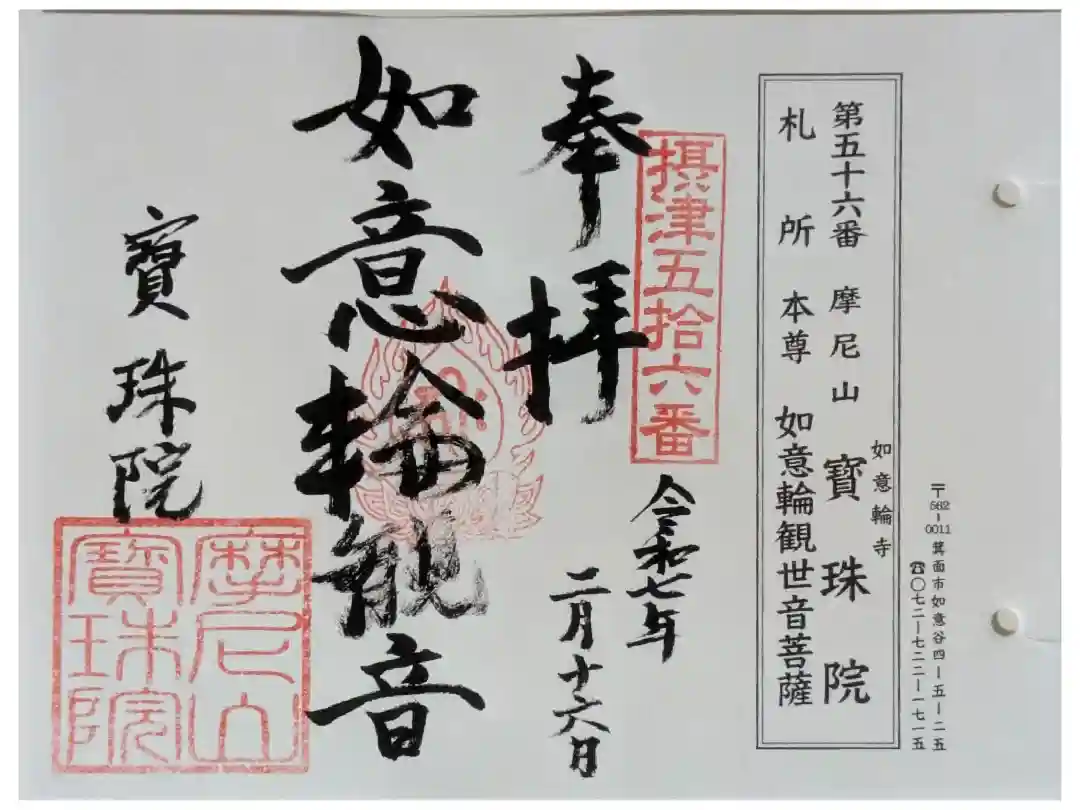 〒562-0011 箕面市如意谷四ー五ー二五
☎〇七二ー七二二ー一七一五
如意輪寺
第五十六番 摩尼山 寳珠院
札所 本尊 如意輪観世音菩薩
摂津五拾六番
奉拝
令和七年
二月十六日
如意輪観音
寳珠院
摩尼山
寳珠院